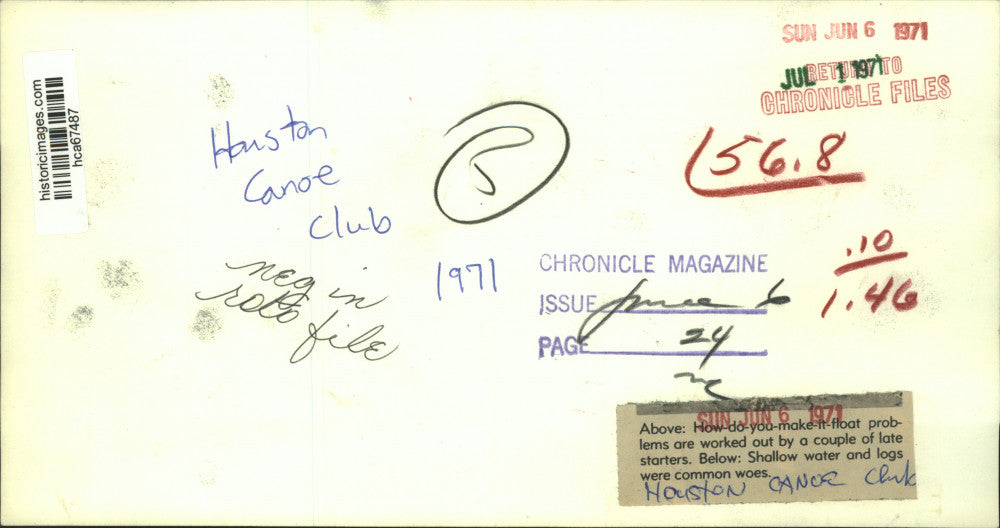 historicimages.com
hca67487
SUN JUN 6 1971
RETURN TO
JUL 1 1971
CHRONICLE FILES
Houston
Canoe
Club
56.8
.10
1.46
1971
neg in
roto file
CHRONICLE MAGAZINE
ISSUE June 6
PAGE 24
SUN JUN 6 1971
Above: How-do-you-make-it-float prob-
lems are worked out by a couple of late
starters. Below: Shallow water and logs
were common woes.
Houston CANOE Club